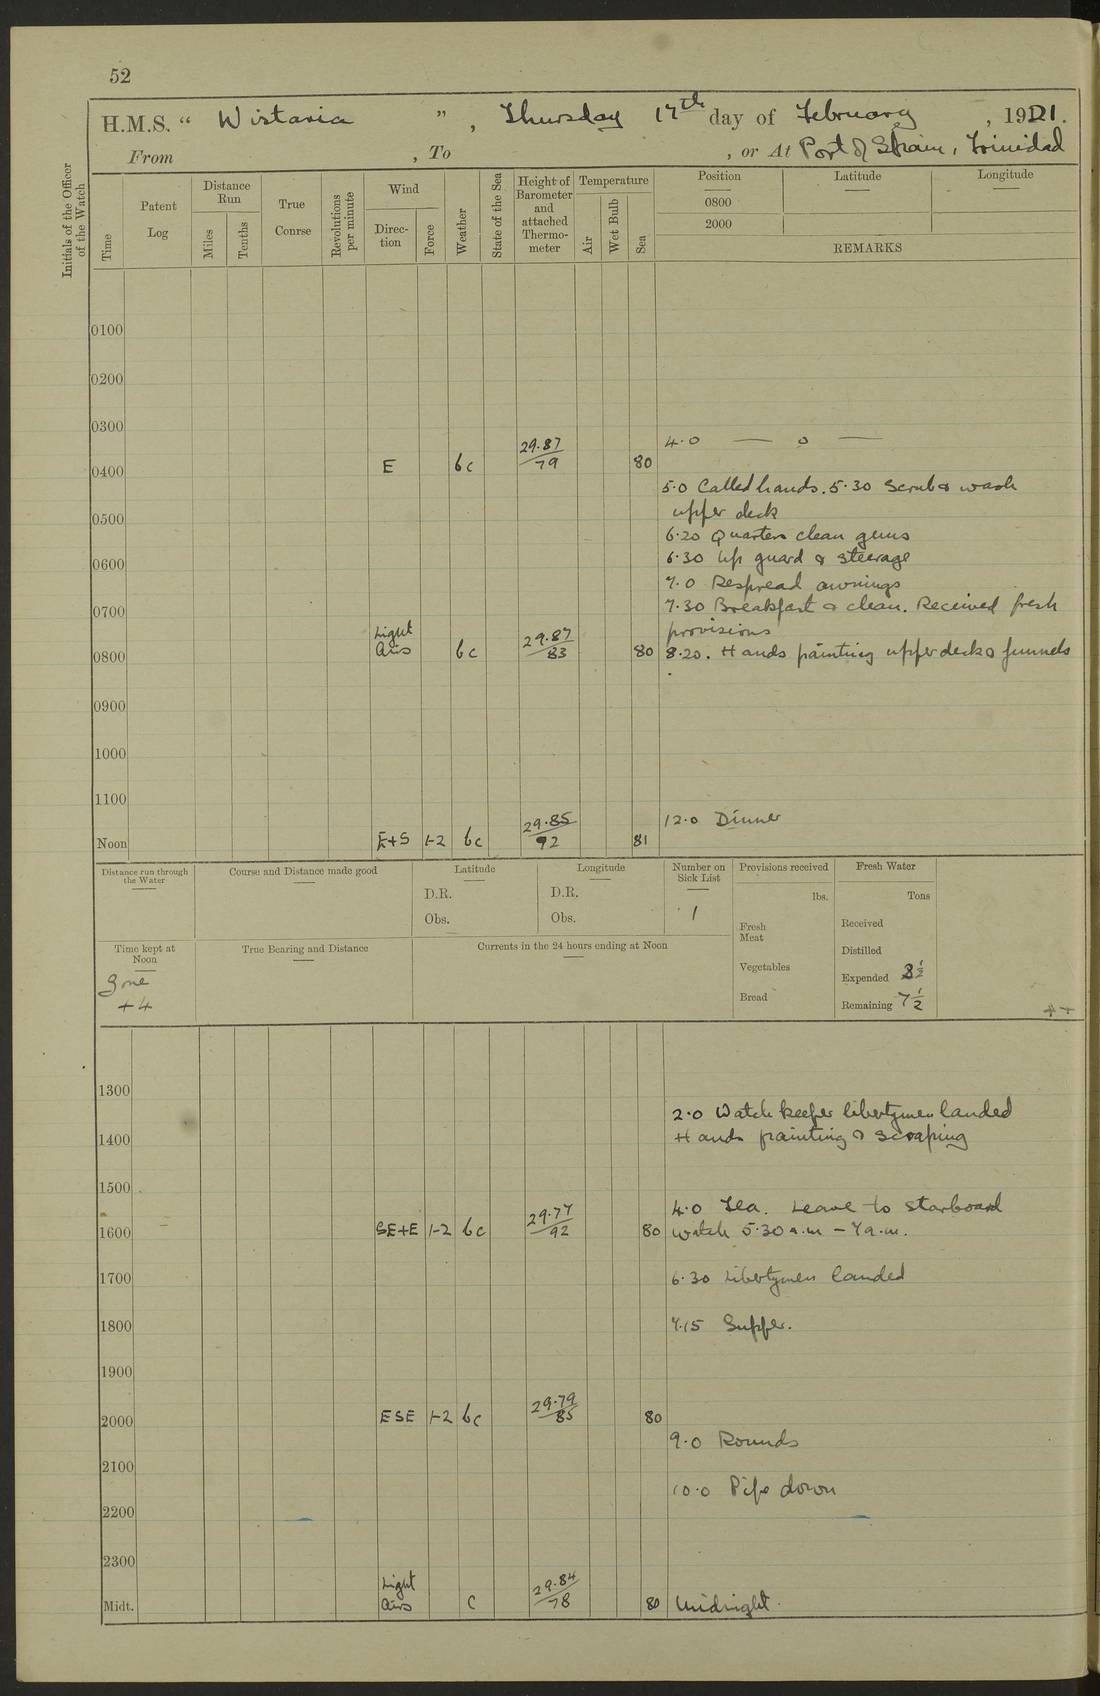 52
H.M.S. “ Wistaria ” , Thursday 17th day of February , 1921.
From , To , or At Port of Spain, Trinidad
Initials of the Officer of the Watch
Time
Patent Log
Distance Run
Miles
Tenths
True Course
Revolutions per minute
Wind
Direction
Force
Weather
State of the Sea
Height of Barometer and attached Thermometer
Temperature
Air
Wet Bulb
Sea
Position Latitude Longitude
0800
2000
REMARKS
0100
0200
0300
4.0 — o —
0400 E bc 29.87/79 80
5.0 Called hands. 5.30 Scrub & wash
upper deck
0500
6.20 Quarters clean guns
6.30 Up guard & steerage
0600
7.0 Respread awnings
7.30 Breakfast & clean. Received fresh
0700
provisions
0800 Light airs bc 29.87/83 80 8.20. Hands painting upper deck & funnels
0900
1000
1100
12.0 Dinner
Noon E+S 1-2 bc 29.85/92 81
Distance run through the Water
Course and Distance made good
Latitude
D.R.
Obs.
Longitude
D.R.
Obs.
Number on Sick List
1
Provisions received
lbs.
Fresh Meat
Vegetables
Bread
Fresh Water
Tons
Received
Distilled
Expended 8½
Remaining 7½
Time kept at Noon
Zone
+4
True Bearing and Distance
Currents in the 24 hours ending at Noon
1300
2.0 Watch keeper libertymen landed
Hands painting & scraping
1400
1500
4.0 Tea. Leave to starboard
1600 SE+E 1-2 bc 29.77/92 80 watch 5.30 a.m – 7 a.m.
1700 6.30 Libertymen landed
1800 7.15 Supper.
1900
2000 ESE 1-2 bc 29.79/85 80
9.0 Rounds
2100
10.0 Pipe down
2200
2300
Midt. Light airs c 29.84/78 80 Midnight.